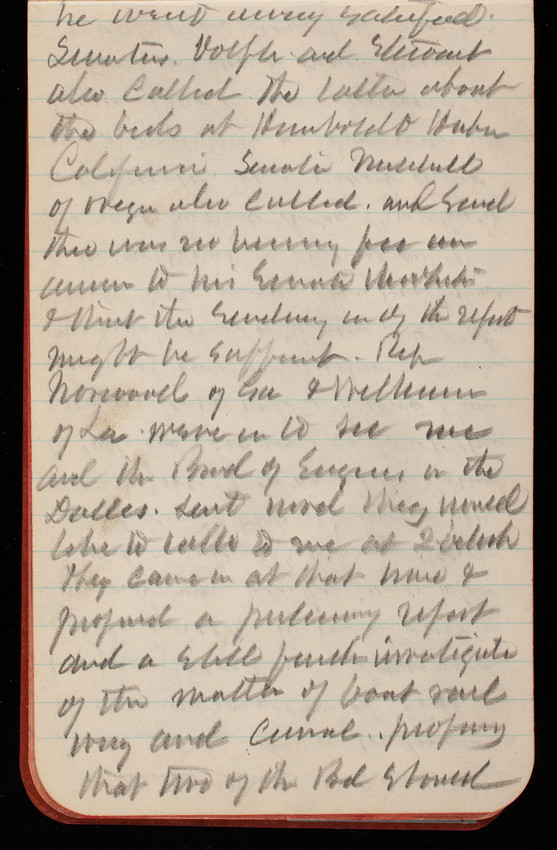 he went away satisfied.
Senators. Dolph and Stewart
also called the latter about
the beds at Humboldt Harbor
California. Senator Mitchell
of Oregn also called. and said
there was no hurry for an
answer to his Senate
& that the sending in of the report
might be sufficient. Rep
Norwood of Ga &
of La were in to see me
and the Board of Engineers on the
Dalles. Sent word they would
like to talk to me at 2 oclock
They came in at that time &
proposed a preliminary report
and a still further investigate
of the matter of boat rail
way and canal. proposing
that two of the Bd should